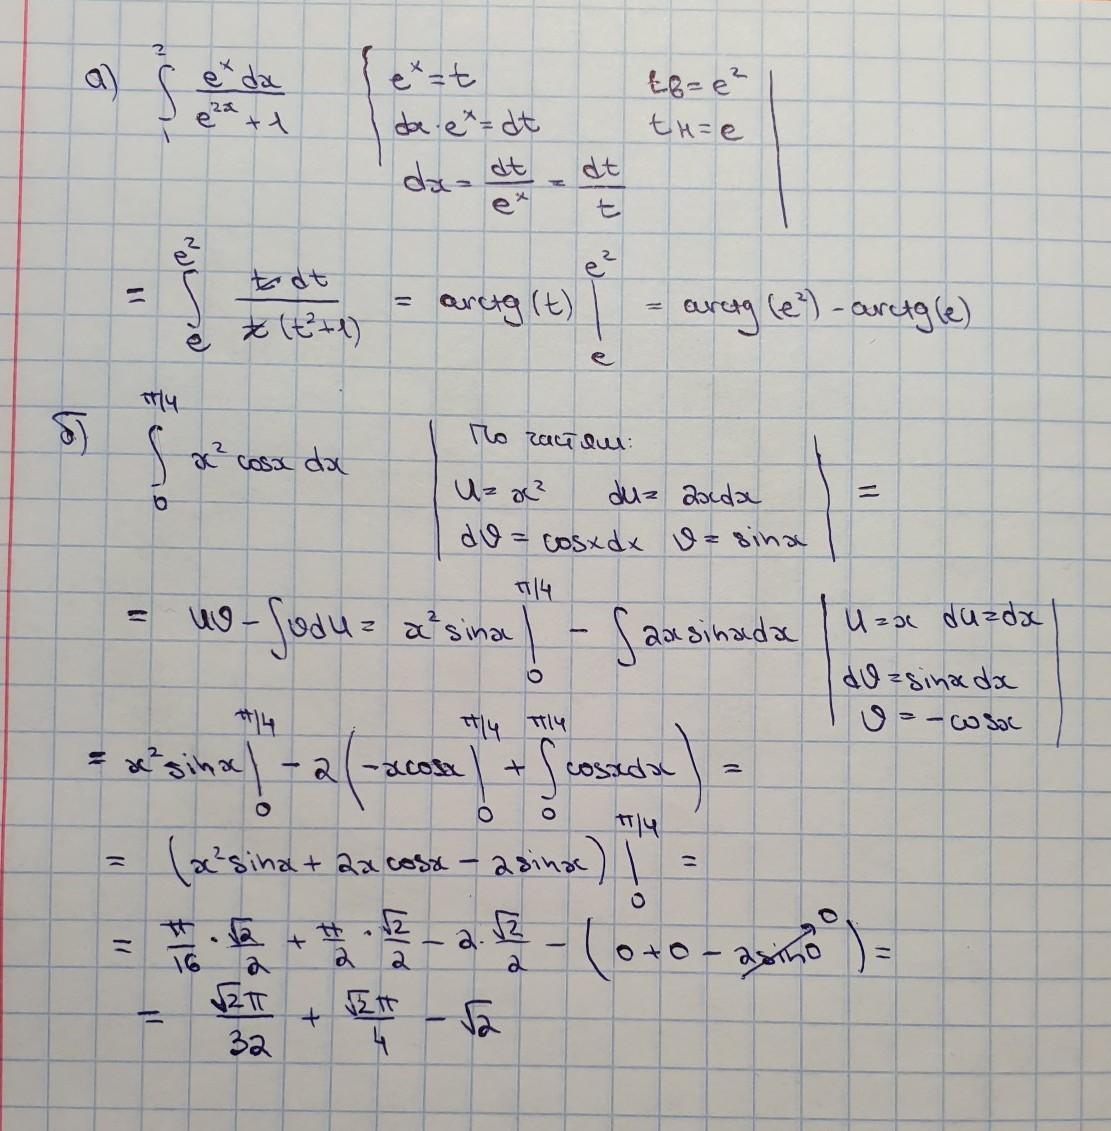 а) ∫₁² eˣdx / (e²ˣ + 1) | eˣ = t tв = e² |
dx · eˣ = dt tн = e
dx = dt/eˣ = dt/t
= ∫ₑ^(e²) t·dt / (t(t²+1)) = arctg(t) |ₑ^(e²) = arctg(e²) - arctg(e)
б) ∫₀^(π/4) x² cosx dx | По частям: | =
u = x² du = 2xdx
dv = cosxdx v = sinx
= uv - ∫vdu = x² sinx |₀^(π/4) - ∫2x sinxdx | u = x du = dx |
dv = sinx dx
v = -cosx
= x² sinx |₀^(π/4) - 2(-xcosx |₀^(π/4) + ∫₀^(π/4) cosxdx) =
= (x² sinx + 2x cosx - 2 sinx) |₀^(π/4) =
= π/16 · √2/2 + π/2 · √2/2 - 2 · √2/2 - (0 + 0 - 2sin0 → 0) =
= √2π/32 + √2π/4 - √2